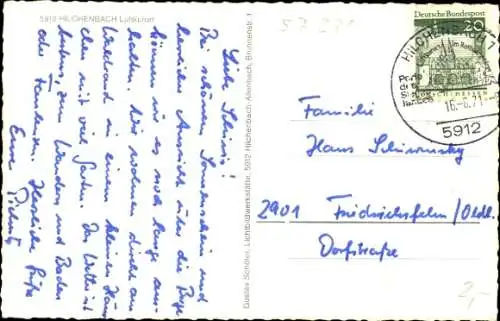 5912 HILCHENBACH Luftkurort
Liebe
Bei schönem Sonnenschein und
herrlicher Aussicht über die Berge
können wir es noch lange aus-
halten. Wir wohnen direkt am
Waldrand in einem kleinen Häus-
chen mit viel Garten. Das Wetter ist
bestens, zum Wandern und Baden
das Herzliche Grüße
Eure
Gustav Schöler, Lichtbildwerkstätte, 5912 Hilchenbach-Allenbach, Brunnenstr. 1
Deutsche Bundespost
20
HILCHENBACH
16.-8.71
5912
Familie
Hans
2901 Friedrichsfehn/Oldb.
Dorfstraße
2,-